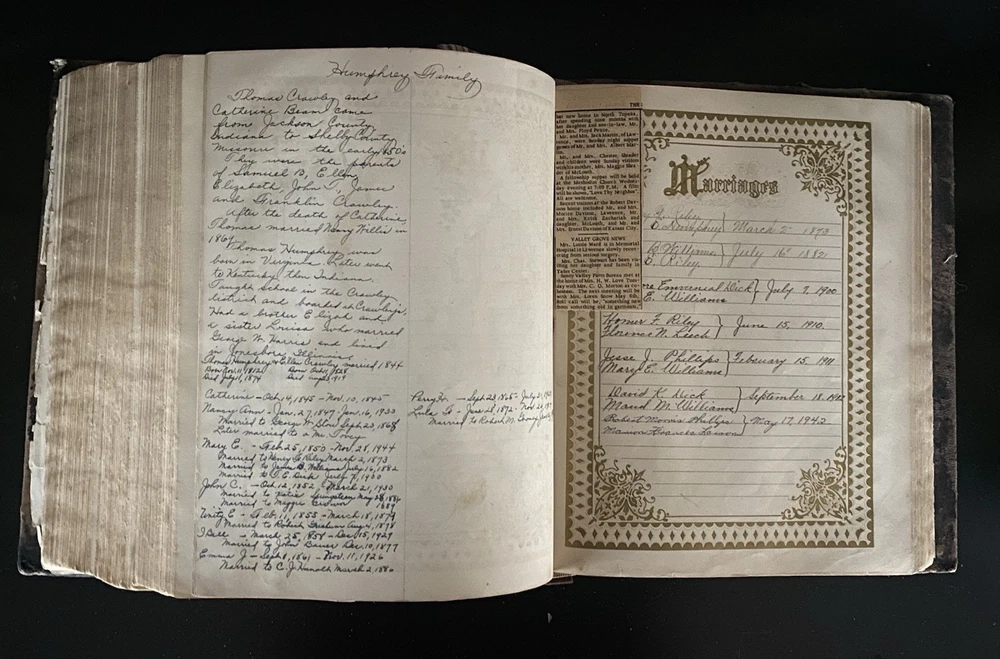 Humphrey Family
Thomas Crawley and
Catherine Beam came
from Jackson County
Indiana to Shelby County,
Missouri in the early 50's
They were the parents
of Samuel B, Ellen,
Elizabeth, John T, James
and Franklin Crawley.
After the death of Catherine
Thomas married Nancy Willis in
186
Thomas Humphrey was
born in Virginia. Later went
to Kentucky, then Indiana.
Taught school in the Crawley
district and boarded at Crawley's
Had a brother Elijah and
a sister Louisa who married
George W Harris and lived
in Jonesboro, Illinois.
Thomas Humphrey & Ellen Crawley married 1844
Born Born
Died July 1, 1874 Died
Catherine - Oct. 14, 1845 - Nov. 10, 1845
Nancy Ann - Jan. 27, 1847 - Jan. 16, 1933
Married to George W. Blow Sept 20, 1868
Later married to a Mr. Tovey
Mary E. - Feb 25, 1850 - Nov. 28, 1944
Married to Henry Riley March 2, 1873
Married to James B. Williams July 16, 1882
Married to E. Dick July 7, 1900
John C. - Oct. 12, 1852 - March 21, 1930
Married to Katie May
Married to Maggie Brown 1889
Unity E - Feb. 11, 1855 - March 18, 1879
Married to Robert Aug 4, 1878
I Bell - March 25, 1858 - Dec 15, 1929
Married to John Bauer Dec. 10, 1877
Emma J - Sept 8, 1861 - Nov. 11, 1926
Married to C. J. March 2, 1880
Perry - Sept 23, 1865 - July 21,
Lula - June 28, 1872 - Nov 24,
Married to Robert M.
THE
her new home in North Topeka,
after spending nine months with
her daughter and son-in-law, Mr.
and Mrs. Floyd Penns.
Mr. and Mrs. Jack Martin, of Law-
rence, were Sunday night supper
guests of Mr. and Mrs. Albert Mar-
Mr. and Mrs. Chester Meador
and children were Sunday visitors
with his mother, Mrs. Maggie Mea-
dor of McLouth.
A fellowship supper will be held
at the Methodist Church Wednes-
day evening at 7:00 P.M. A film
will be shown, "Love Thy Neighbor"
All are welcome.
Recent visitors at the Robert Dav-
ison home included Mr. and Mrs.
Marion Davison, Lawrence, Mr.
and Mrs. Keith Zachariah and
daughter, McLouth, and Mr. and
Mrs. Ernest Davison of Kansas City.
VALLEY GROVE NEWS
Mrs. Lottie Ward is in Memorial
Hospital in Lawrence slowly recov-
ering from serious surgery.
Mrs. Chas. Stewart has been vis-
iting her daughter and family in
Yates Center.
Sunny Valley Farm Bureau met at
the home of Mrs. H. W. Love Tues-
day with Mrs. C. O. Morton as co-
hostess. The next meeting will be
with Mrs. Loren Snow May 6th.
Roll call will be, "something new
from something old in garments.
Marriages
Riley
E. Humphrey } March 2 1873
B. Williams
E. Riley } July 16 1882
Emmanuel Dick
E. Williams } July 7, 1900
Homer F. Riley
Florence N. Leech } June 15, 1910.
Jesse J. Phillips
Mary E. Williams } February 15, 1911
David K. Dick
Maud M. Williams } September 18,
Robert Morris Phillips
Frances Larson } May 17, 1942